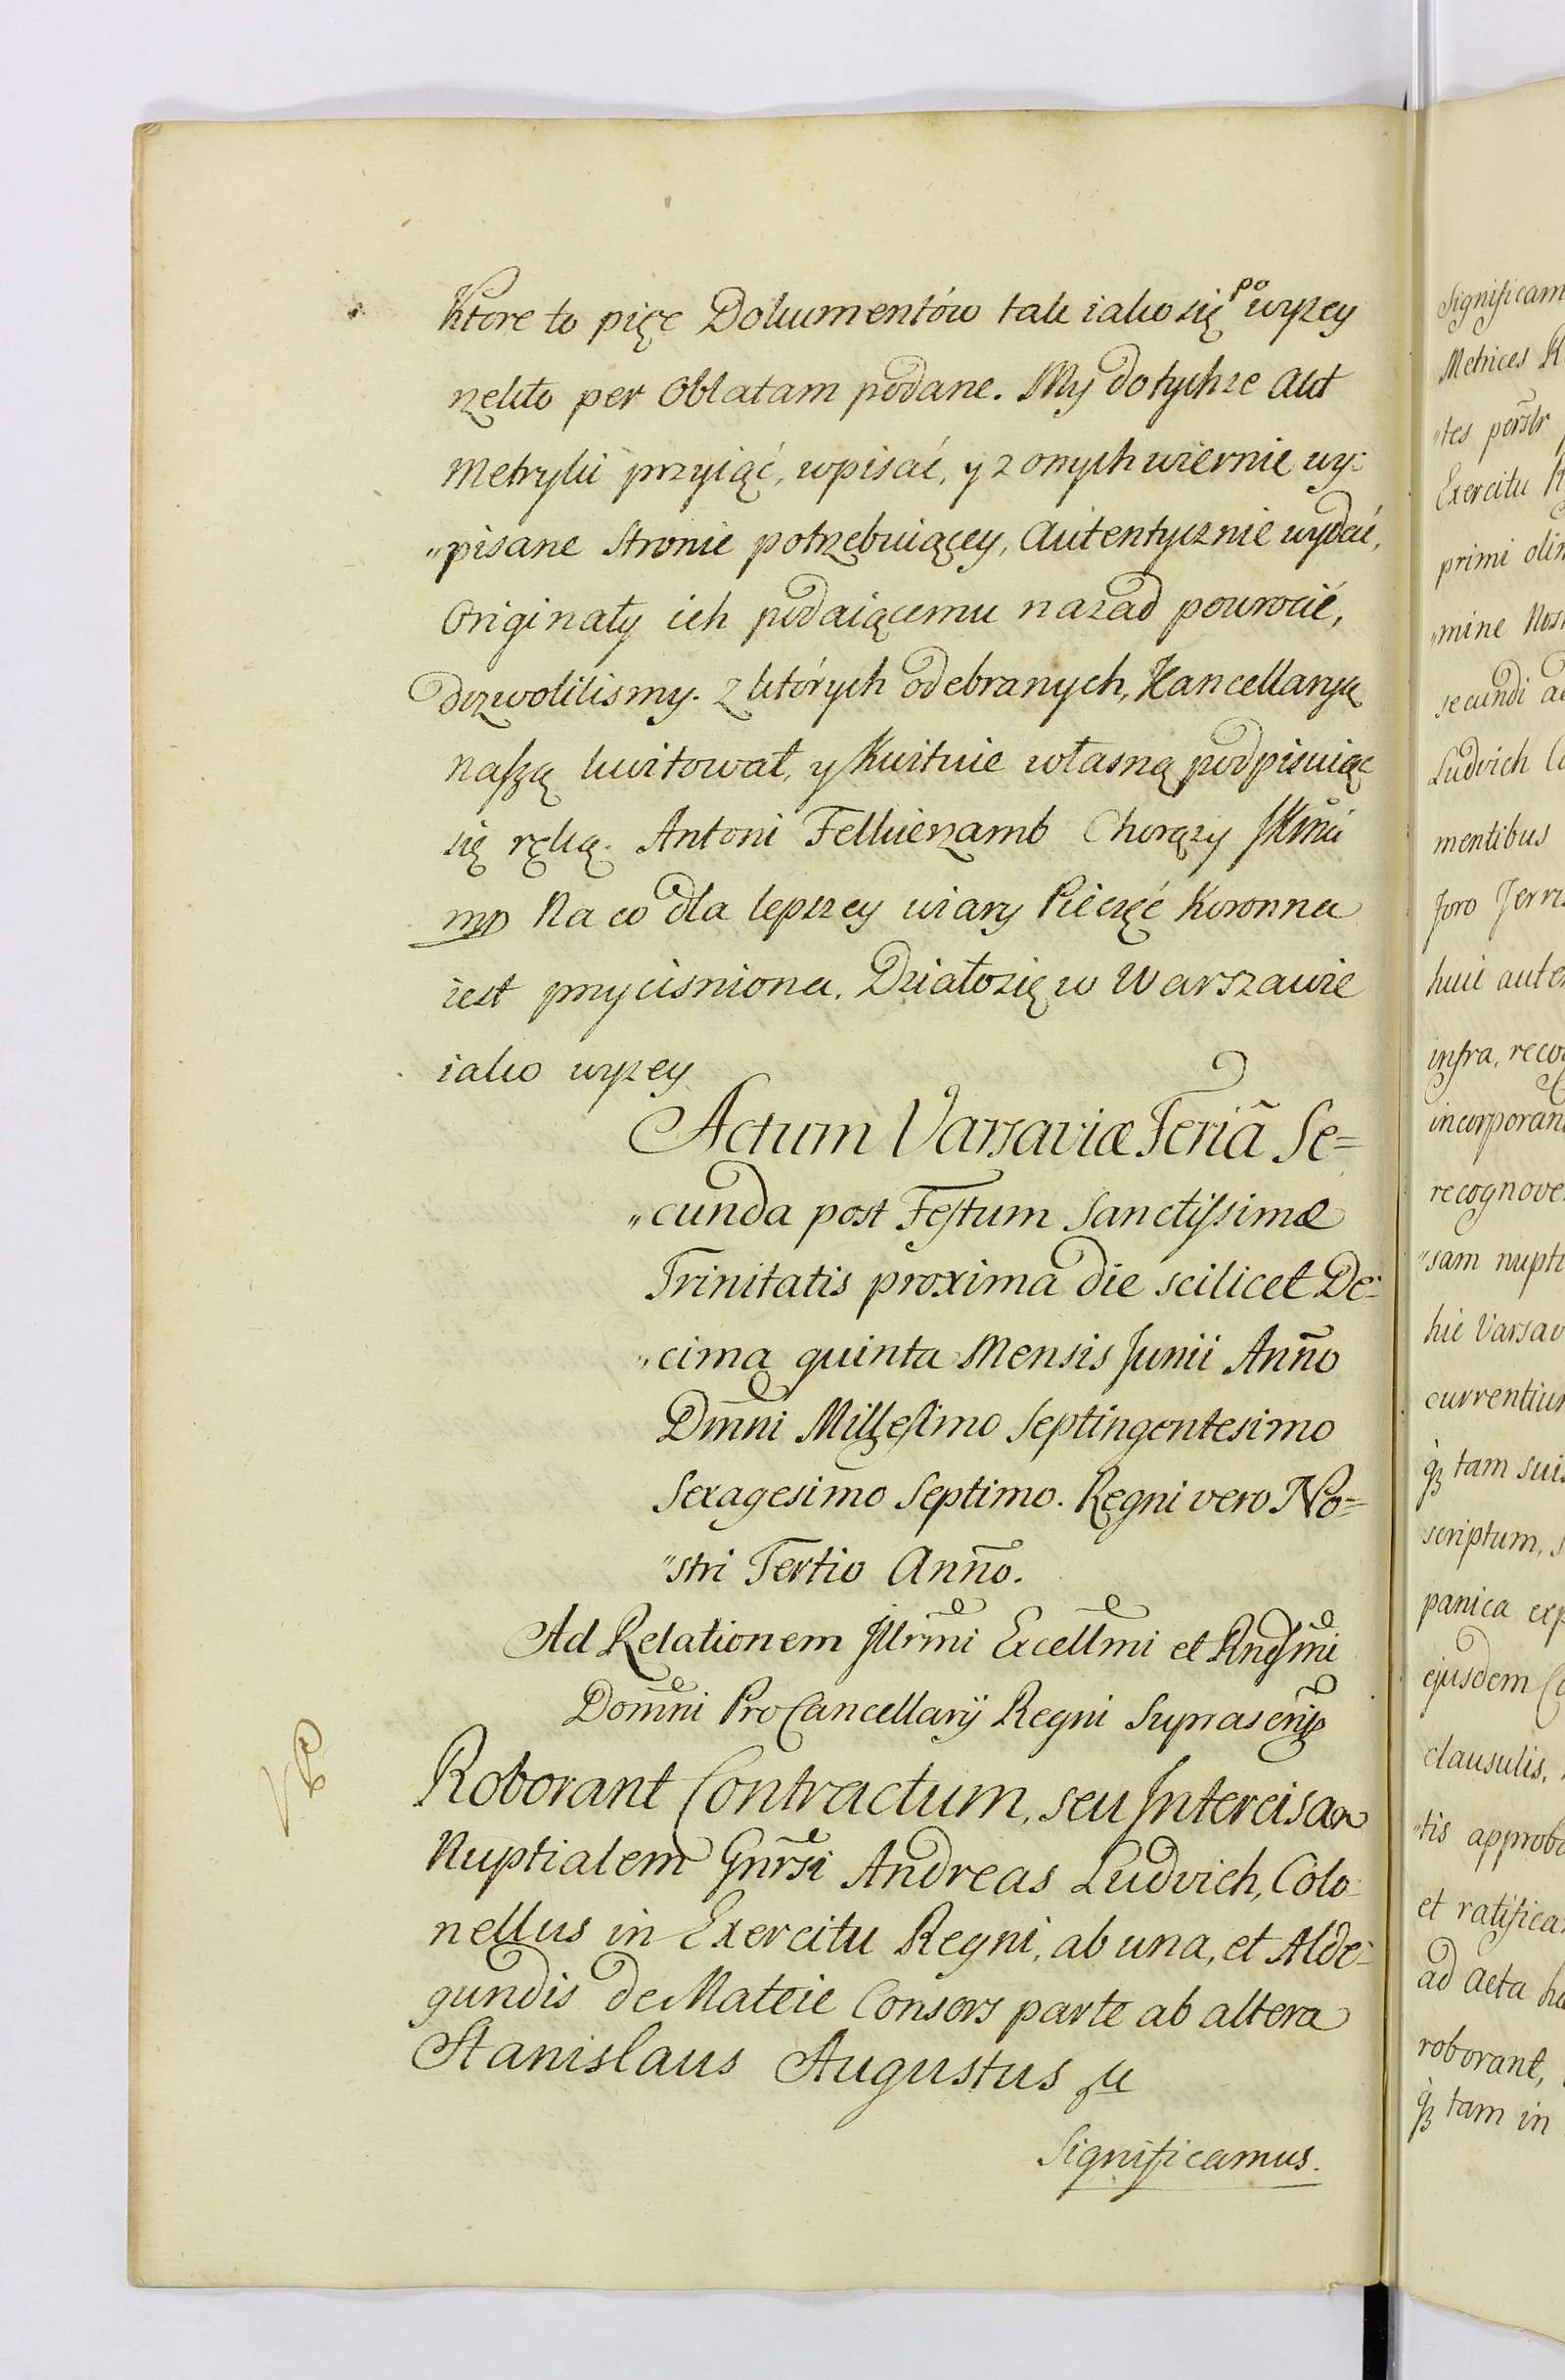 Ktore to pięć Dokumentów tak iako się powyzey
rzekło per Oblatam podane. My do tychze Akt
Metryki przyiąć, wpisać, y z onych wiernie wy:
„pisane Stronie potrzebuiącey, Autentycznie wydać,
Originały ich podaiącemu nazad powrocić,
dozwolilismy. z których odebranych, Kancellaryą
naszą kwitował, y Kwituie własną podpisuiąc
się ręką. Antoni Felkierzamb Chorąży
mp Na co dla lepszey wiary Pieczęć Koronna
iest przycisniona. Działo się w Warszawie
iako wyzey
Actum Varsaviæ Feriã Se=
„cunda post Festum Sanctissimæ
Trinitatis proxima die scilicet De:
„cima quinta Mensis Junii Anño
Dmñi Millesimo Septingentesimo
Sexagesimo Septimo. Regni vero No=
„stri Tertio Anño.
Ad Relationem Illrmi Excellmi et Rndsmi
Domni ProCancellarij Regni Suprascrip
Roborant Contractum, seu Intercisam
Nuptialem Gnrsi Andreas Ludvich, Colo:
nellus in Exercitu Regni, ab una, et Alde:
gundis de Mateie Consors parte ab altera
Stanislaus Augustus
Significamus.
Significam
Metrices R
„tes
Exercitu R
primi olim
„mine Nos
secundi ad
Ludvich Co
mentibus
foro
huic autem
infra, reco
incorporan
recognove
„sam nupti
hic Varsav
currentium
q̃ tam suis
scriptum, s
panica exp
ejusdem Co
clausulis,
„tis approba
et ratifica
ad Acta ha
roborant,
q̃ tam in